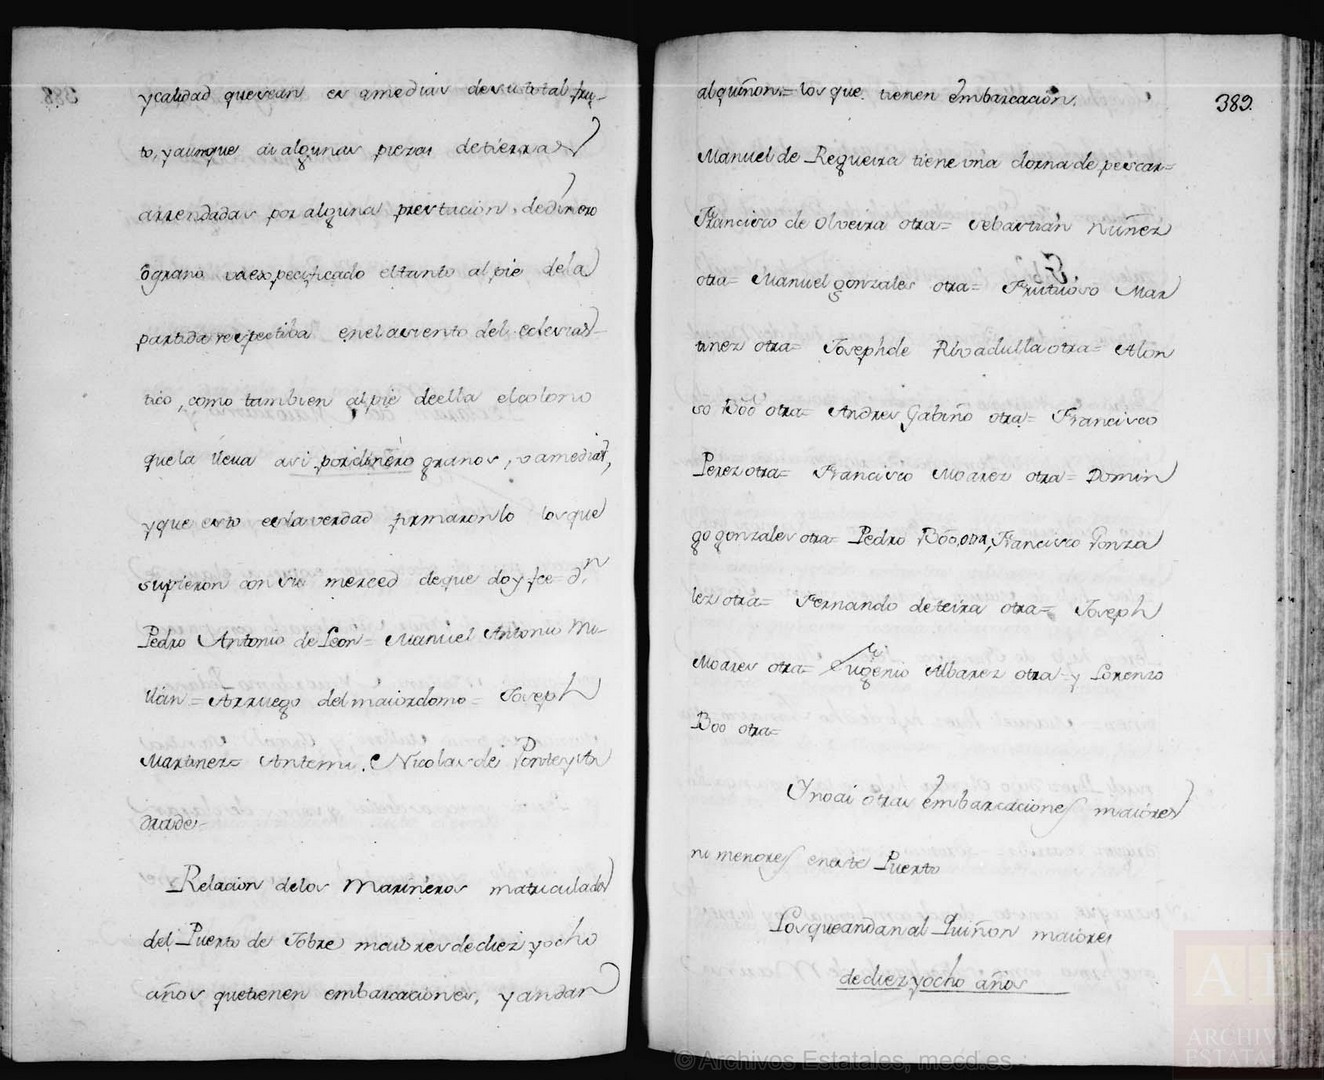 y calidad que sean es a medias de su total fru-
to, y aunque ai algunas piezas de tierras
arrendadas por alguna prestacion, de dinero
o grano va expecificado el tanto al pie de la
partida respectiba en el asiento del eclesias-
tico, como tambien al pie de ella el colono
que la lleua asi por dinero granos, o a medias,
y que esto es la verdad firmaronlo los que
supieron con su merced de que doy fee = Dn
Pedro Antonio de Leon = Manuel Antonio Mi-
llán = Arruego del maiordomo = Joseph
Martinez = Antemi, Nicolas de Ponte y An
drade =
Relacion de los Marineros matriculados
del Puerto de Tobre maiores de diez y ocho
años que tienen embarcaciones, y andan
al quiñon = los que tienen embarcación.
389.
Manuel de Regueira tiene una dorna de pescar =
Francisco de Olveira otra = Sebastián Nuñez
otra = Manuel gonzales otra = Frutuoso Mar
tinez otra = Joseph de Rivadulla otra = Alon
so Boó otra = Andres Gabiño otra = Francisco
Perez otra = Francisco Moarez otra = Domin
go gonzales otra = Pedro Bóo, otra, Francisco Gonza
lez otra = Fernando de teira otra = Joseph
Moares otra = Eugenio Albarez otra = y Lorenzo
Boo otra =
Y no ai otras embarcaciones maiores
ni menores en este Puerto
Los que andan al Quiñon maiores
de diez y ocho años
© Archivos Estatales, mecd.es
ARCHIVOS
ESTATALES